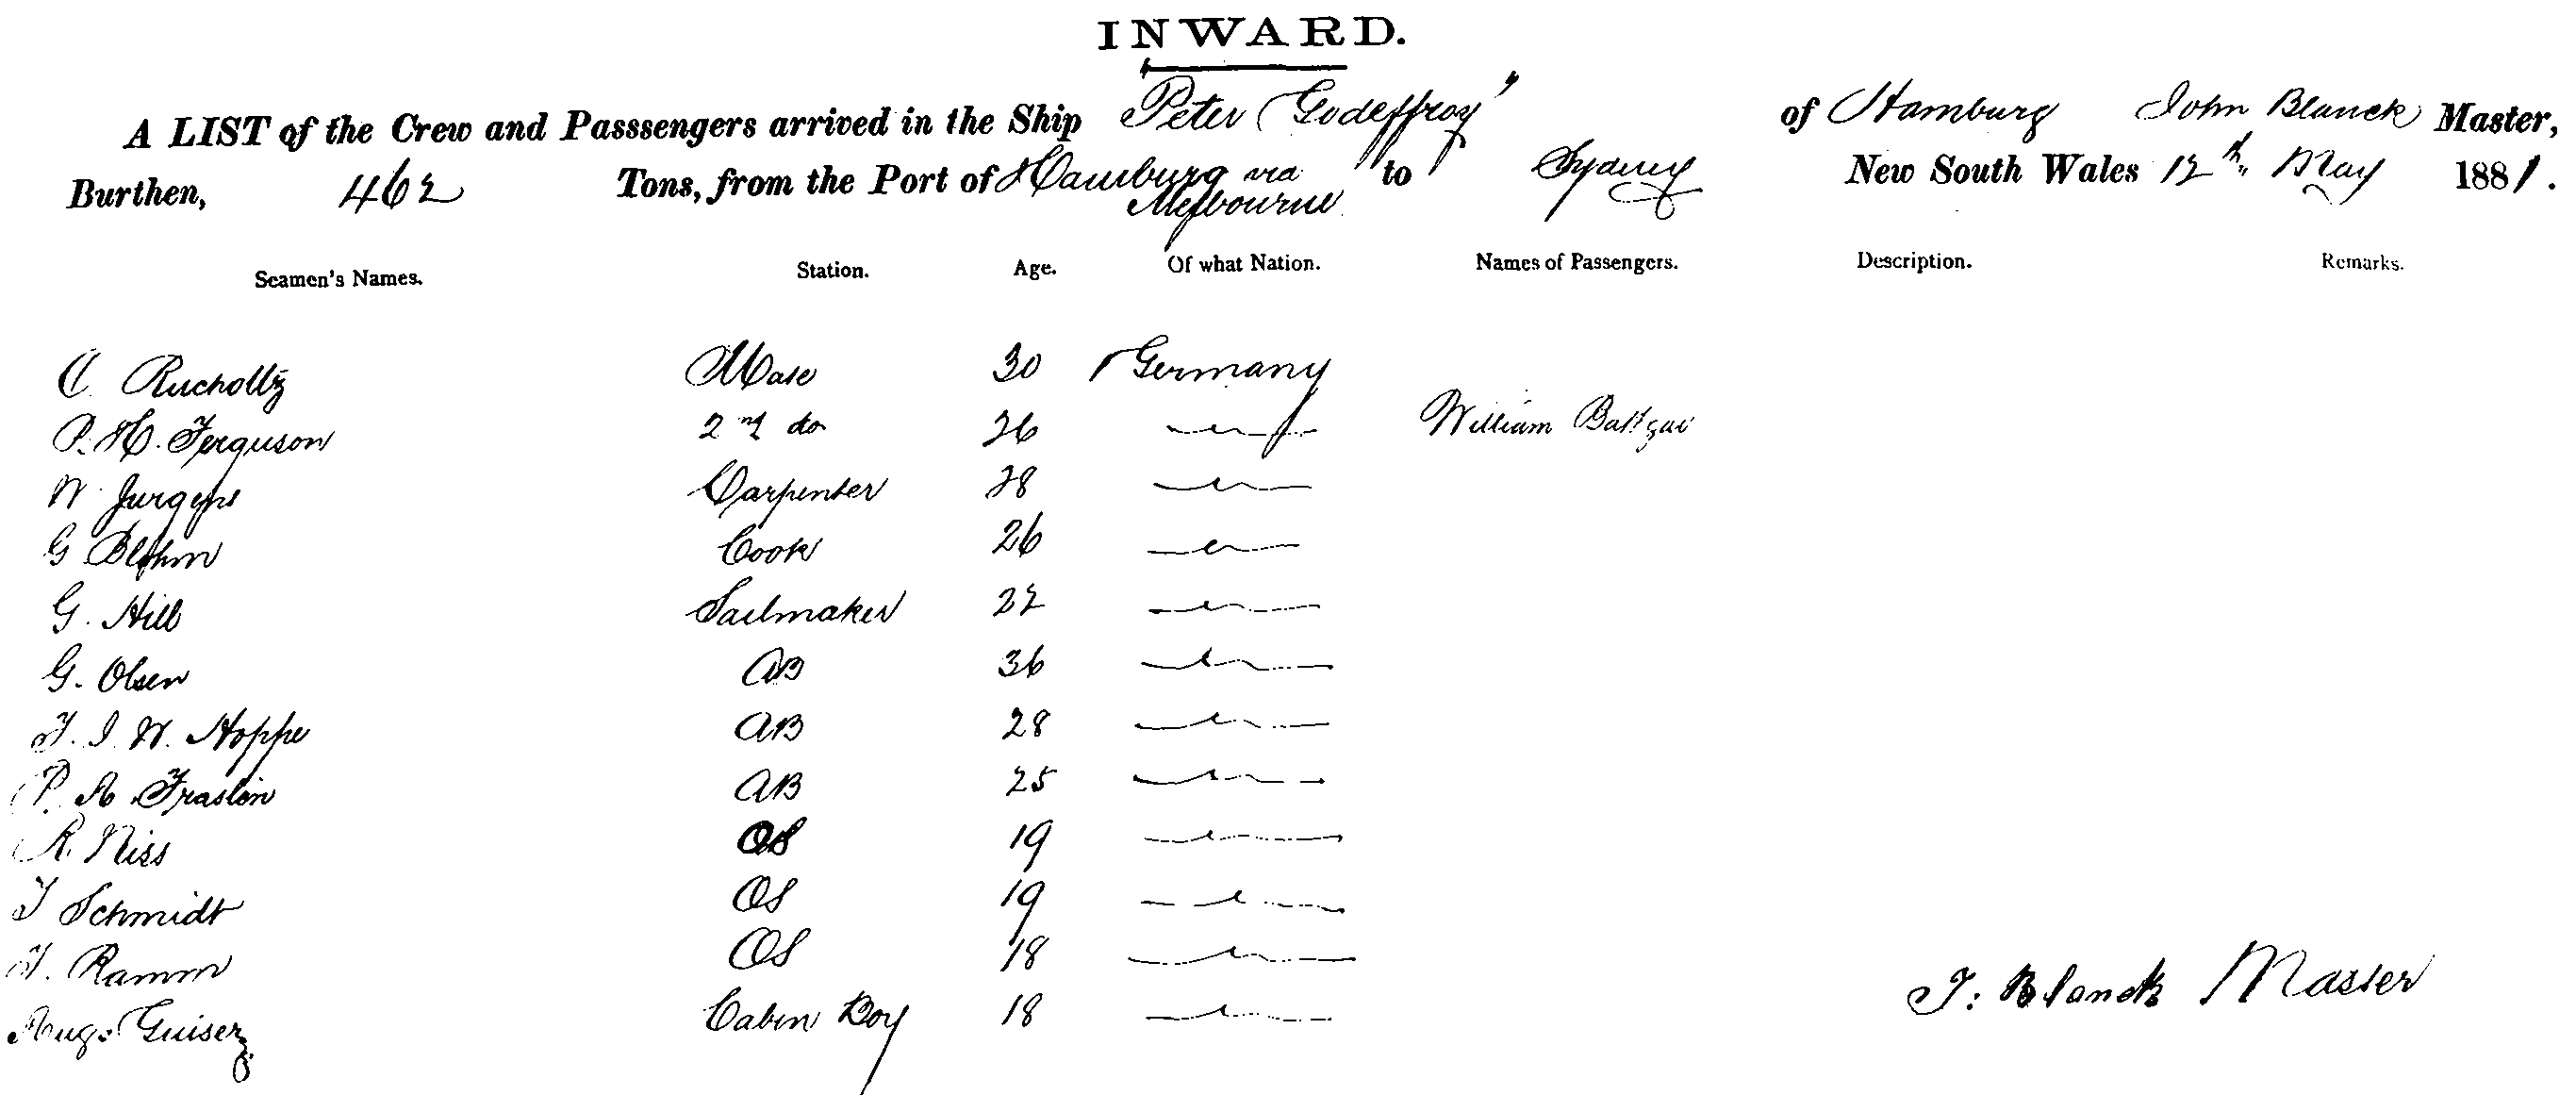 INWARD.
A LIST of the Crew and Passsengers arrived in the Ship "Peter Godeffroy" of Hamburg John Blanck Master,
Burthen, 462 Tons, from the Port of Hamburg via Melbourne to Sydney New South Wales 12th May 1881.
Seamen's Names. Station. Age. Of what Nation. Names of Passengers. Description. Remarks.
C. Rucholtz Mate 30 Germany
P. H. Ferguson 2nd do 26 William
W. Jurgens Carpenter 28
G Blohm Cook 26
G. Hill Sailmaker 22
G. Olsen AB 36
J. J. W. Hoppe AB 28
P. A. AB 25
R. Niss OS 19
J Schmidt OS 19
J. Ramm OS 18
J: Blanck Master
Aug: Cabin Boy 18